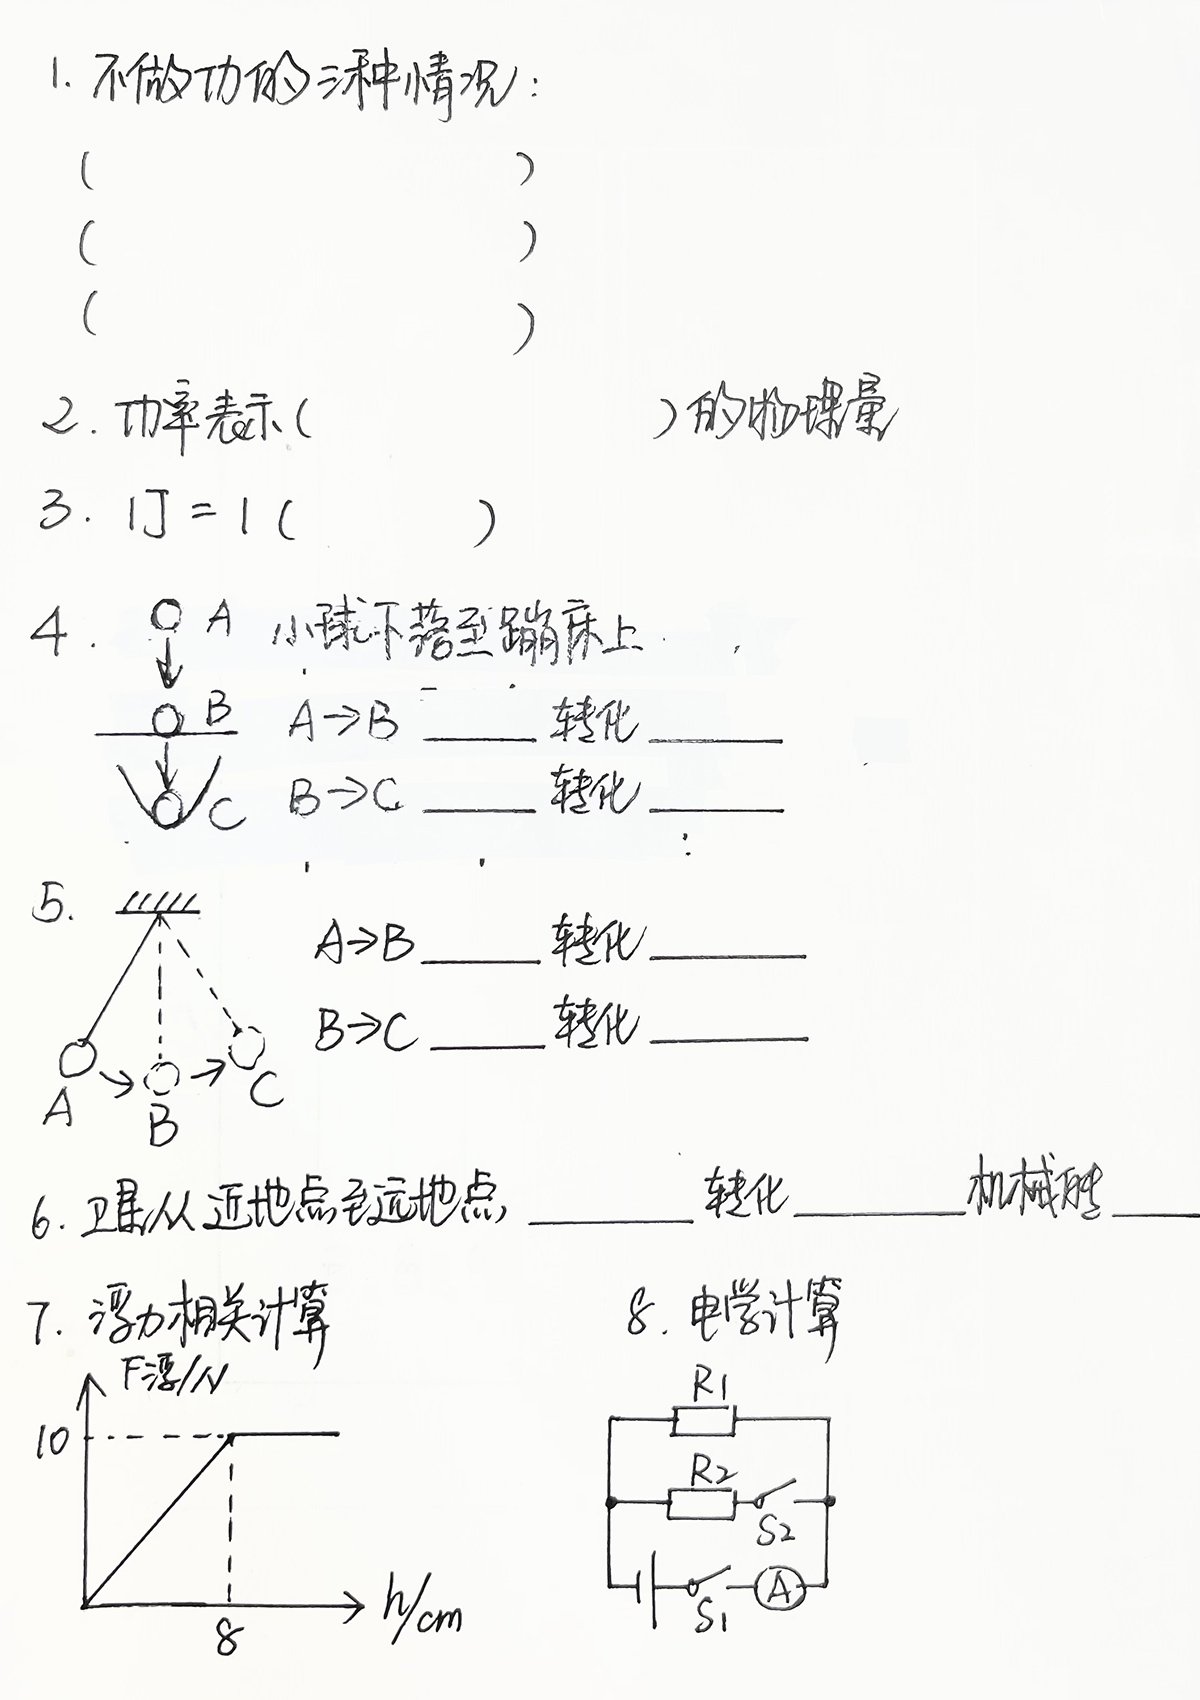 1. 不做功的三种情况:
(                    )
(                    )
(                    )
2. 功率表示(                    )的物理量
3. 1J = 1 (          )
4. A 小球下落至蹦床上.
B A→B ______ 转化 ______
C B→C ______ 转化 ______
5. A→B ______ 转化 ______
B→C ______ 转化 ______
A B C
6. 卫星从近地点至远地点, ______ 转化 ______ 机械能 ____
7. 浮力相关计算
F浮/N
10
8
h/cm
8. 电学计算
R1
R2
S2
S1
A